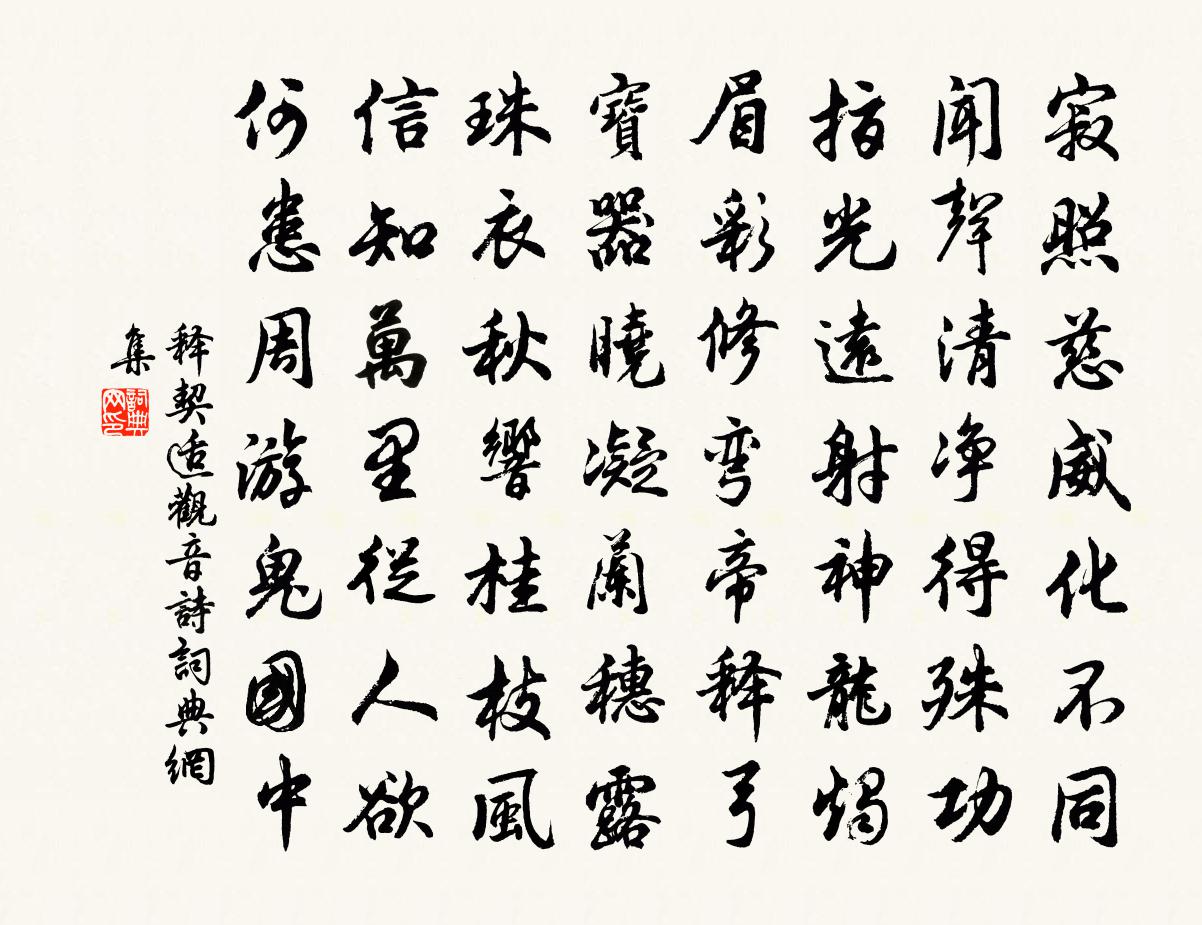 寂照慈威化不同
聞聲清净得殊功
指光遠射神龍燭
眉彩修彎帝释弓
寶器曉凝蘭穗露
珠衣秋響桂枝風
信知萬里從人欲
何患周游鬼國中
释契适觀音詩詞典網
集
詞典
网印